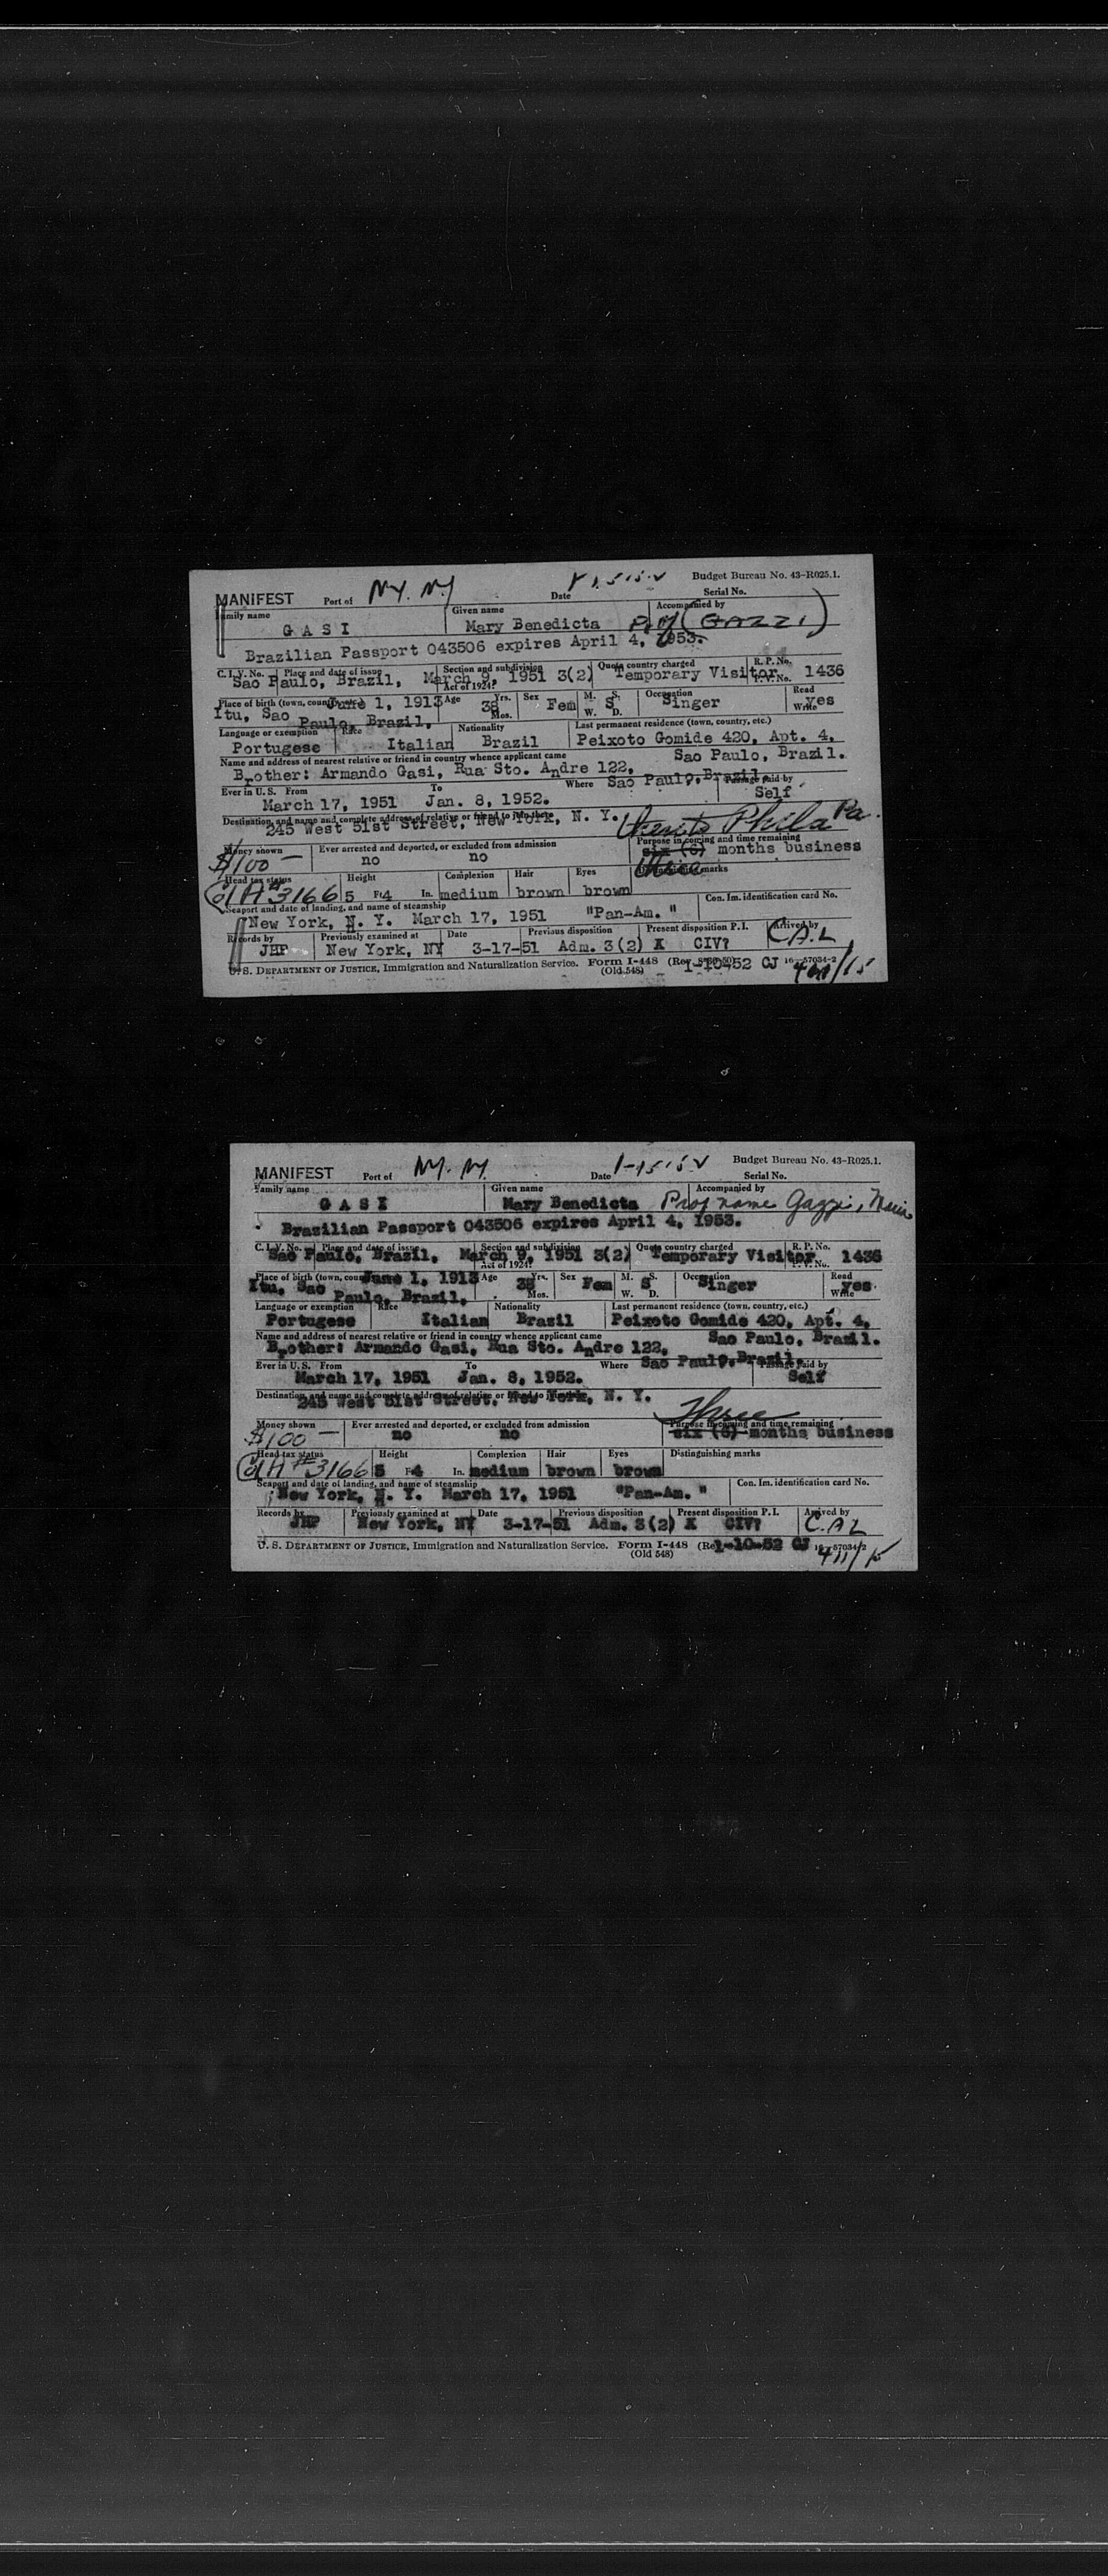 Budget Bureau No. 43-R025.1.
MANIFEST Port of N.Y. N.Y Date 1-15-52 Serial No.
Family name Given name Accompanied by
GASI Mary Benedicta P.N (GAZZI)
Brazilian Passport 043506 expires April 4, 1953.
C.I.V. No. Place and date of issue Section and subdivision Act of 1924: Quota country charged R. P. No. P. V. No.
Sao Paulo, Brazil, March 9, 1951 3(2) Temporary Visitor 1436
Place of birth (town, country) Age Yrs. Mos. Sex M. S. W. D. Occupation Read Write
June 1, 1913 38 Fem S Singer yes
Itu, Sao Paulo, Brazil,
Language or exemption Race Nationality Last permanent residence (town, country, etc.)
Portugese Italian Brazil Peixoto Gomide 420, Apt. 4,
Name and address of nearest relative or friend in country whence applicant came Sao Paulo, Brazil.
Brother: Armando Gasi, Rua Sto. Andre 122,
Ever in U. S. From To Where Sao Paulo, Brazil. Passage paid by
March 17, 1951 Jan. 8, 1952. Self
Destination, and name and complete address of relative or friend to join there
245 West 51st Street, New York, N. Y. Phila Pa.
Money shown Ever arrested and deported, or excluded from admission Purpose in coming and time remaining
$100 — no no six (6) months business
three
Head tax status Height Complexion Hair Eyes Distinguishing marks
#3166 5 Ft. 4 In. medium brown brown
Seaport and date of landing, and name of steamship Con. Im. identification card No.
New York, N. Y. March 17, 1951 "Pan-Am. "
Records by Previously examined at Date Previous disposition Present disposition P. I. Arrived by
JHP New York, NY 3-17-51 Adm. 3(2) X CIV? C.A.L
U. S. DEPARTMENT OF JUSTICE, Immigration and Naturalization Service. Form I-448 1-10-52 CJ 16—57034-2
(Old 548) 411/15
Budget Bureau No. 43-R025.1.
MANIFEST Port of N.Y. N.Y. Date 1-15-52 Serial No.
Family name Given name Accompanied by
GASI Mary Benedicta Prof name Gazzi, Maria
Brazilian Passport 043506 expires April 4, 1953.
C.I.V. No. Place and date of issue Section and subdivision Act of 1924: Quota country charged R. P. No. P. V. No.
Sao Paulo, Brazil, March 9, 1951 3(2) Temporary Visitor 1436
Place of birth (town, country) Age Yrs. Mos. Sex M. S. W. D. Occupation Read Write
June 1, 1913 38 Fem S Singer yes
Itu, Sao Paulo, Brazil,
Language or exemption Race Nationality Last permanent residence (town, country, etc.)
Portugese Italian Brazil Peixoto Gomide 420, Apt. 4,
Name and address of nearest relative or friend in country whence applicant came Sao Paulo, Brazil.
Brother: Armando Gasi, Rua Sto. Andre 122,
Ever in U. S. From To Where Sao Paulo, Brazil. Passage paid by
March 17, 1951 Jan. 8, 1952. Self
Destination, and name and complete address of relative or friend to join there
245 West 51st Street, New York, N. Y.
three
Money shown Ever arrested and deported, or excluded from admission Purpose in coming and time remaining
$100 — no no six (6) months business
Head tax status Height Complexion Hair Eyes Distinguishing marks
#3166 5 Ft. 4 In. medium brown brown
Seaport and date of landing, and name of steamship Con. Im. identification card No.
New York, N. Y. March 17, 1951 "Pan-Am. "
Records by Previously examined at Date Previous disposition Present disposition P. I. Arrived by
JHP New York, NY 3-17-51 Adm. 3(2) X CIV? C.A.L
U. S. DEPARTMENT OF JUSTICE, Immigration and Naturalization Service. Form I-448 1-10-52 CJ 16—57034-2
(Old 548) 411/15